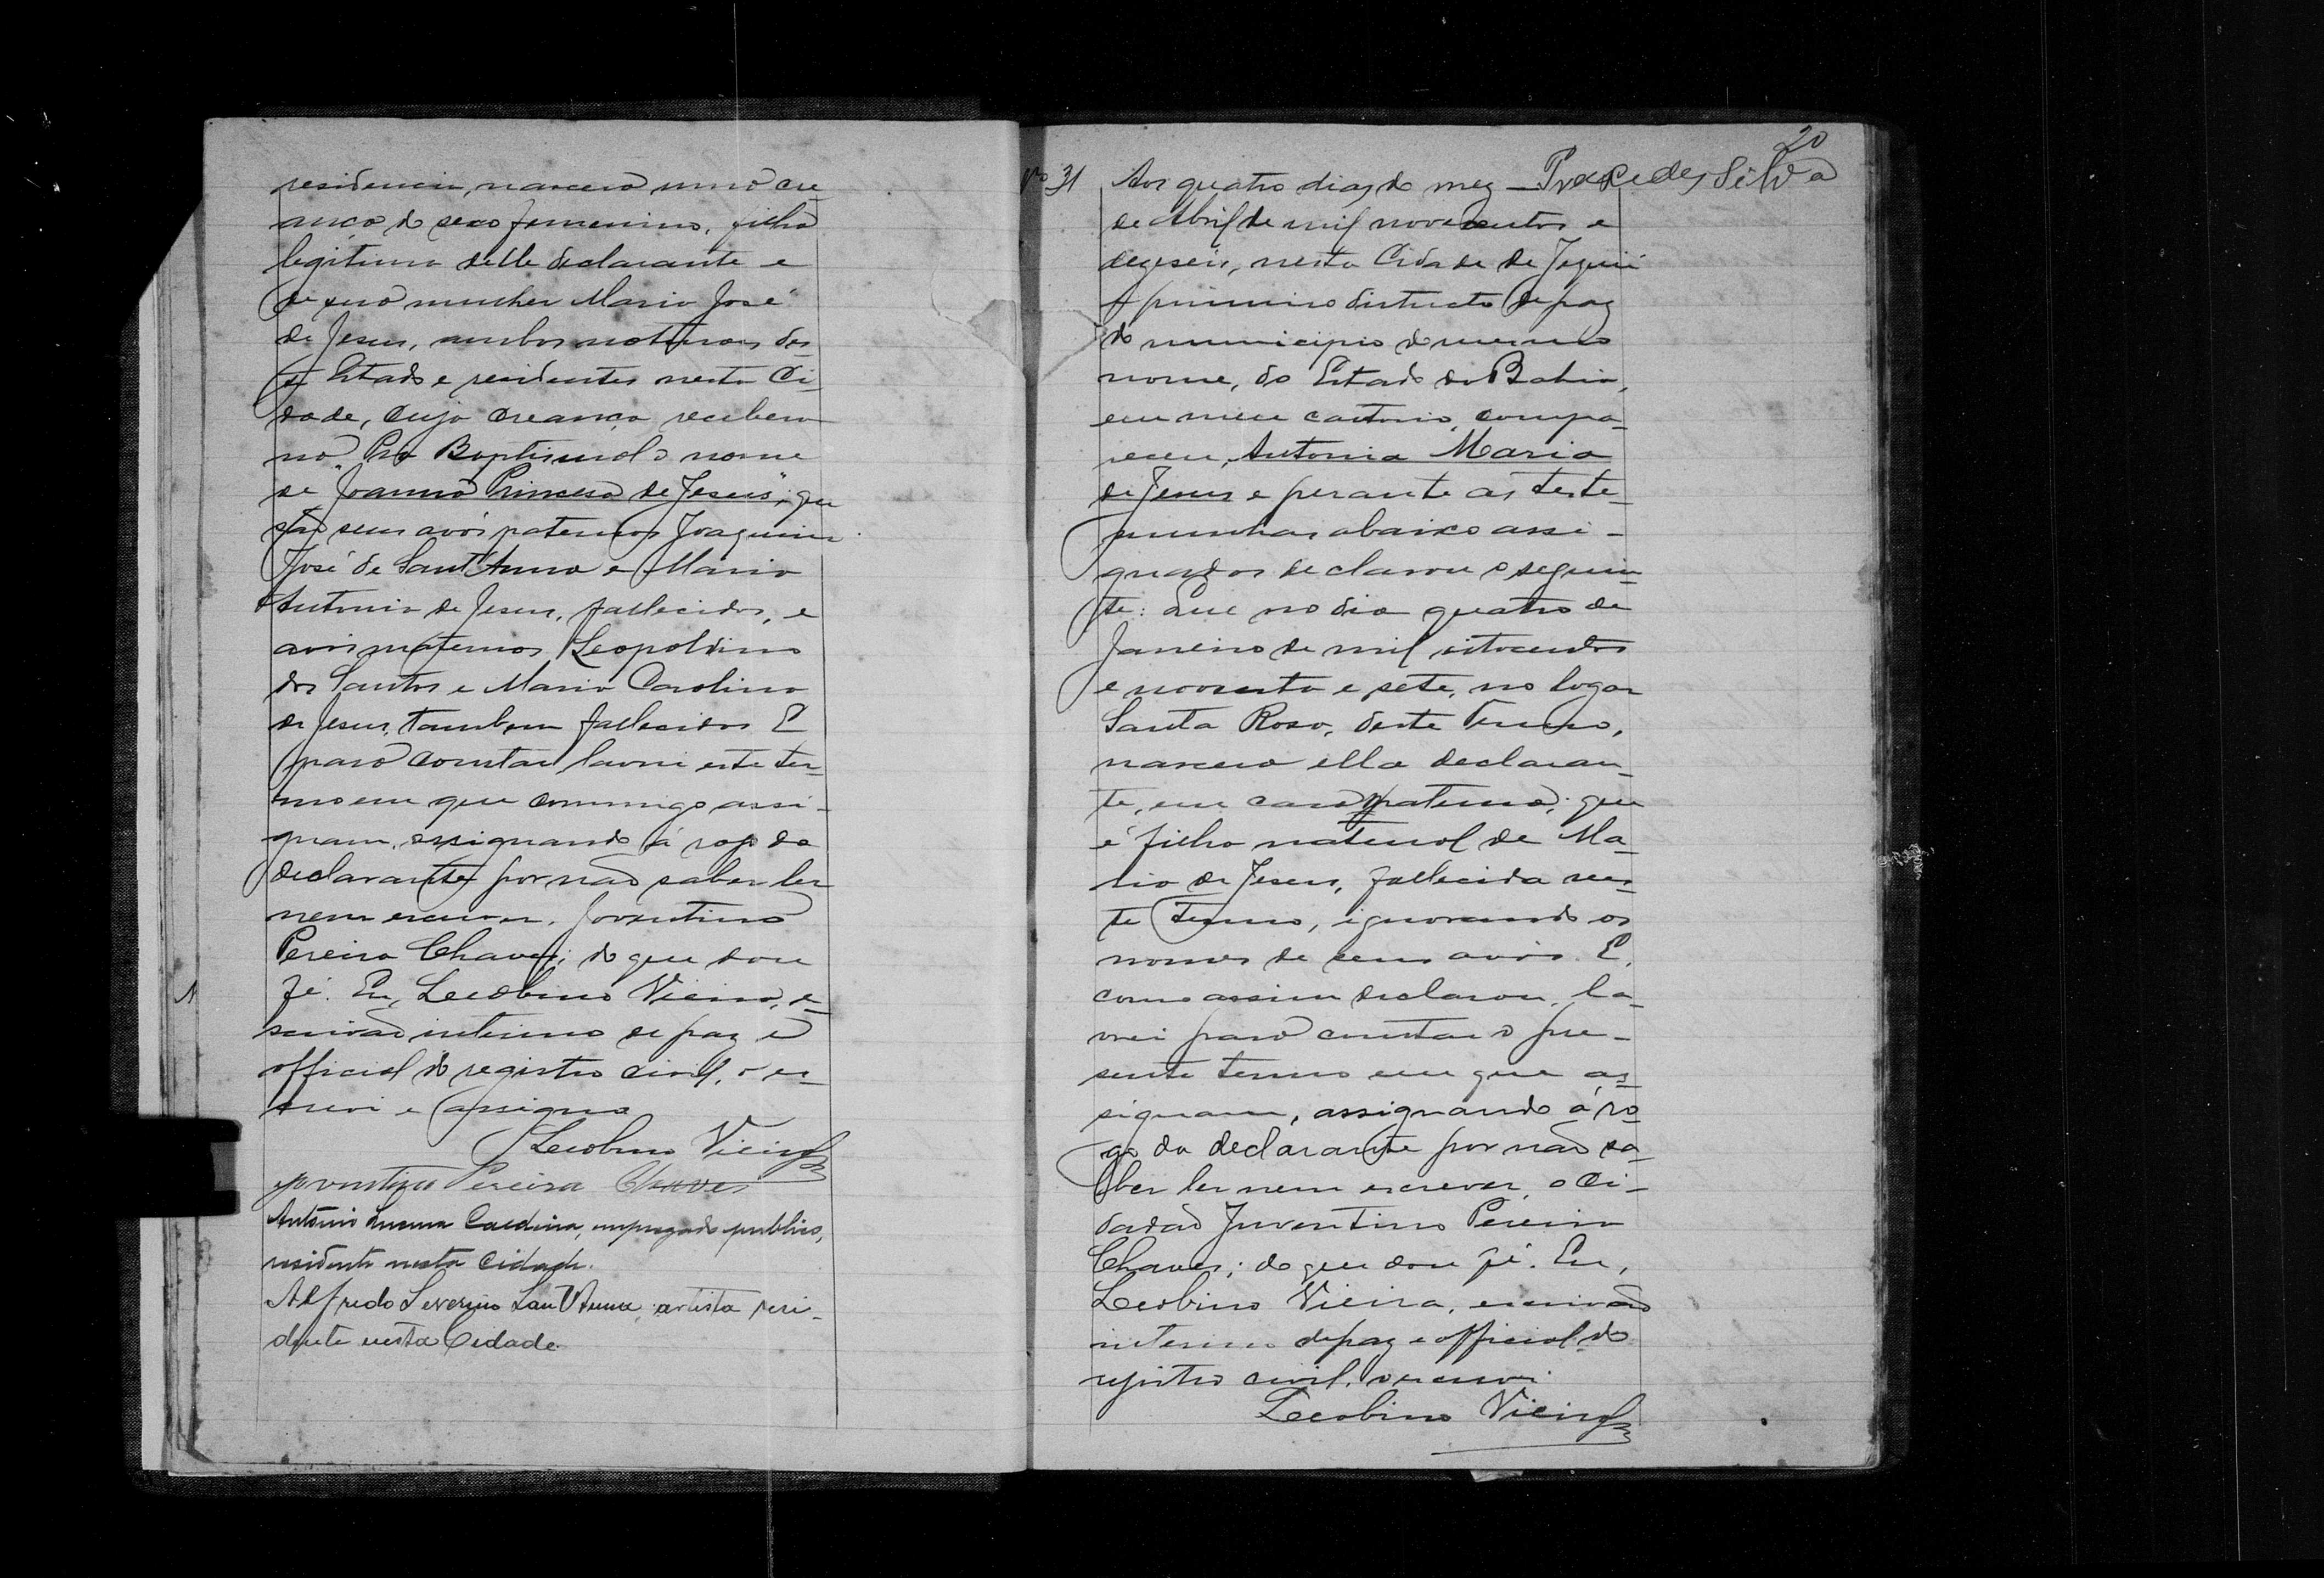 residencia, nasceu uma cre-
ança do sexo femenino, filha
legitima delle declarante e
de sua mulher Maria José
de Jesus, ambos naturaes des-
te Estado e residentes nesta Ci-
dade, cuja creança recebera
na Pia Baptismal o nome
de "Joanna Princesa de Jesus"; que
são seus avós paternos Joaquim
José de Sant'Anna e Maria
Antonia de Jesus, fallecidos, e
avós maternos Leopoldino
dos Santos e Maria Carolina
de Jesus, tambem fallecidos. E
para constar lavrei este ter-
mo em que commigo assi-
gnam, assignando á rogo do
declarante por não saber ler
nem escrever, Joventino
Pereira Chaves; do que dou
fé. Eu, Lecobino Vieira, es-
crivão interino de paz e
official do registro civil, o es-
crevi e assigno
Lecobino Vieira
Joventino Pereira Chaves
Antonio Caldeira, empregado publico,
residente nesta Cidade.
Alfredo Severino Sant'Anna, artista resi-
dente nesta Cidade.
20
Nº 31 Aos quatro dias do mez — Praxedes Silva
de Abril de mil novecentos e
dezeseis, nesta Cidade de Jequié
primeiro districto de paz
do municipio do mesmo
nome, do Estado da Bahia,
em meu cartorio, compa-
receu, Antonia Maria
de Jesus e perante as teste-
munhas abaixo assi-
gnadas declarou o seguin-
te: Que no dia quatro de
Janeiro de mil oitocentos
e noventa e sete, no logar
Santa Rosa, deste Termo,
nasceu ella declaran-
te, em casa paterna; que
é filha natural de Ma-
ria de Jesus, fallecida nes-
te Termo, ignorando os
nomes de seus avós. E,
como assim declarou, la-
vrei para constar o pre-
sente termo em que as-
signam, assignando á ro-
go da declarante por não sa-
ber ler nem escrever, o Ci-
dadão Juventino Pereira
Chaves; do que dou fé. Eu,
Lecobino Vieira, escrivão
interino de paz e official do
registro civil, o escrevi.
Lecobino Vieira